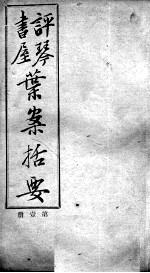 評琴書屋
葉案括要
第壹册